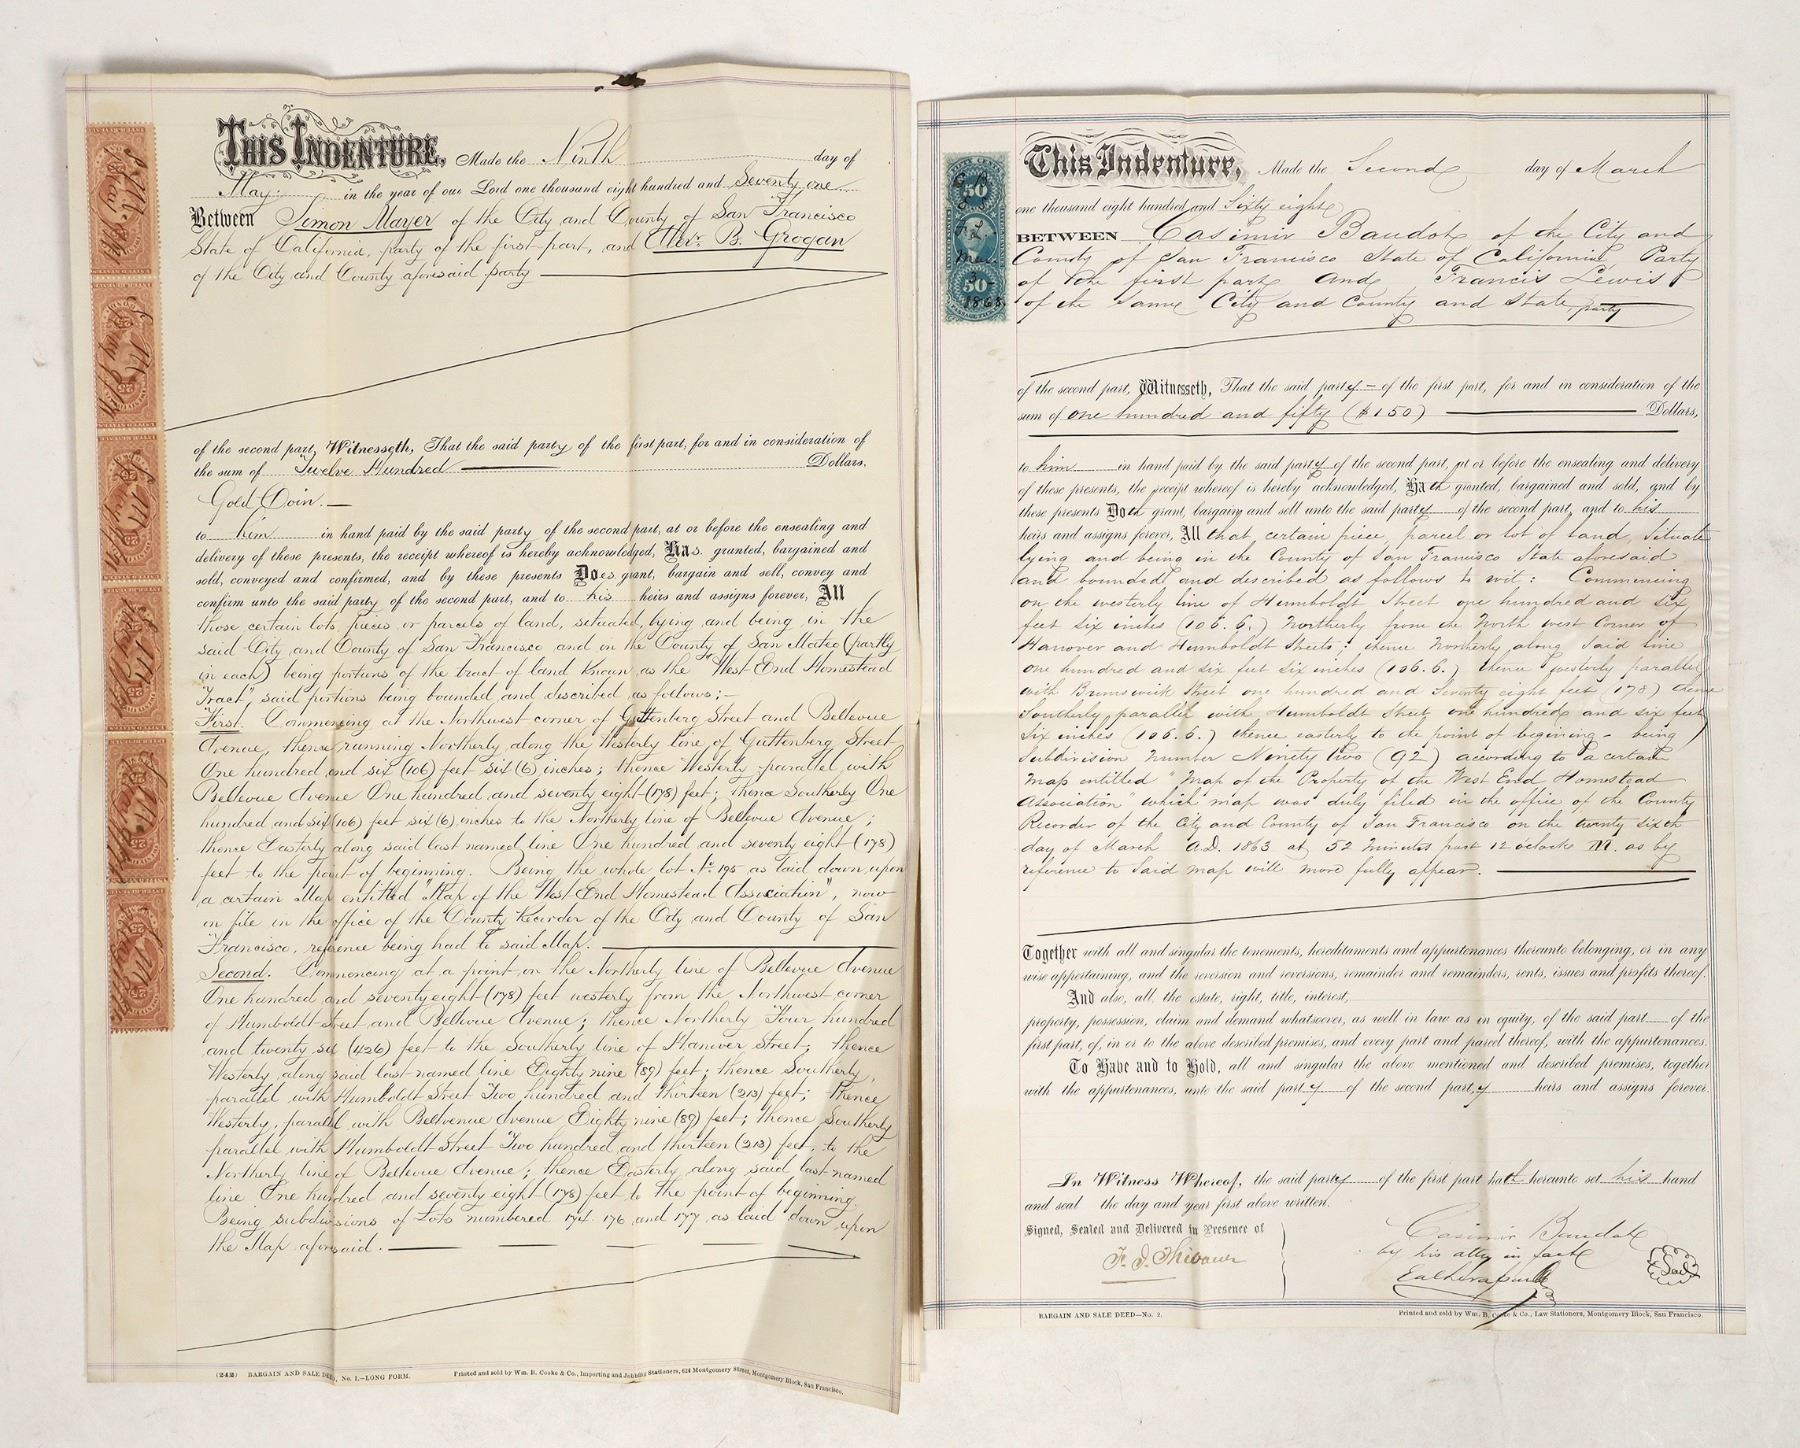 THIS INDENTURE, Made the Ninth day of
May in the year of our Lord one thousand eight hundred and Seventy one
Between Simon Mayer of the City and County of San Francisco
State of California, party of the first part, and Alexr. B. Grogan
of the City and County aforesaid party
of the second part, Witnesseth, That the said party of the first part, for and in consideration of
the sum of Twelve Hundred Dollars,
Gold Coin.—
to him in hand paid by the said party of the second part, at or before the ensealing and
delivery of these presents, the receipt whereof is hereby acknowledged, Has granted, bargained and
sold, conveyed and confirmed, and by these presents Does grant, bargain and sell, convey and
confirm unto the said party of the second part, and to his heirs and assigns forever, All
those certain lots, pieces or parcels of land, situated, lying and being in the
said City and County of San Francisco and in the County of San Mateo (partly
in each) being portions of the tract of land known as the "West End Homestead
Tract", said portions being bounded and described as follows;—
First. Commencing at the Northwest corner of Guttenberg Street and Bellevue
Avenue, thence running Northerly along the Westerly line of Guttenberg Street
One hundred and six (106) feet six (6) inches; thence Westerly parallel with
Bellevue Avenue One hundred and seventy eight (178) feet; thence Southerly One
hundred and six (106) feet six (6) inches to the Northerly line of Bellevue Avenue;
thence Easterly along said last named line One hundred and seventy eight (178)
feet to the point of beginning. Being the whole lot No. 195 as laid down upon
a certain Map entitled "Map of the West End Homestead Association", now
on file in the office of the County Recorder of the City and County of San
Francisco, reference being had to said Map.
Second. Commencing at a point on the Northerly line of Bellevue Avenue
One hundred and seventy eight (178) feet westerly from the Northwest corner
of Humboldt Street and Bellevue Avenue; thence Northerly Four hundred
and twenty six (426) feet to the Southerly line of Hanover Street; thence
Westerly along said last named line Eighty nine (89) feet; thence Southerly,
parallel with Humboldt Street Two hundred and thirteen (213) feet; thence
Westerly, parallel with Bellvenue Avenue Eighty nine (89) feet; thence Southerly
parallel with Humboldt Street Two hundred and thirteen (213) feet, to the
Northerly line of Bellevue Avenue; thence Easterly along said last named
line One hundred and seventy eight (178) feet to the point of beginning.
Being subdivisions of Lots numbered 174. 176 and 177, as laid down upon
the Map aforesaid.
(242) BARGAIN AND SALE DEED, No. 1.—LONG FORM. Printed and sold by Wm. B. Cooke & Co., Importing and Jobbing Stationers, 624 Montgomery Street, Montgomery Block, San Francisco.
50
Mar
50
1868
This Indenture, Made the Second day of March
one thousand eight hundred and Sixty eight
BETWEEN Casimir Baudot of the City and
County of San Francisco State of California Party
of the first part and Francis Lewis
of the same City and County and State, party
of the second part, Witnesseth, That the said party of the first part, for and in consideration of the
sum of one hundred and fifty ($150) Dollars,
to him in hand paid by the said party of the second part, at or before the ensealing and delivery
of these presents, the receipt whereof is hereby acknowledged, Hath granted, bargained and sold, and by
these presents Doth grant, bargain and sell unto the said party of the second part, and to his
heirs and assigns forever, All that certain piece, parcel or lot of Land, Situate
lying and being in the County of San Francisco State aforesaid
and bounded and described as follows to wit: Commencing
on the westerly line of Humboldt Street one hundred and six
feet six inches (106.6.) Northerly from the North west Corner of
Hanover and Humboldt Streets; thence Northerly along Said line
one hundred and six feet six inches (106.6.) thence westerly parallel
with Brunswick Street one hundred and Seventy eight feet (178) thence
Southerly parallel with Humboldt Street one hundred and six feet
six inches (106.6.) thence easterly to the point of begining - being
Subdivision Number Ninety two (92) according to a certain
map entitled "Map of the Property of the West End Homestead
Association" which map was duly filed in the office of the County
Recorder of the City and County of San Francisco on the twenty sixth
day of March A.D. 1863 at 52 minutes past 12 oclock M. as by
reference to Said map will more fully appear.
Together with all and singular the tenements, hereditaments and appurtenances thereunto belonging, or in any
wise appertaining, and the reversion and reversions, remainder and remainders, rents, issues and profits thereof.
And also, all the estate, right, title, interest,
property, possession, claim and demand whatsoever, as well in law as in equity, of the said part of the
first part, of, in or to the above described premises, and every part and parcel thereof, with the appurtenances.
To Have and to Hold, all and singular the above mentioned and described premises, together
with the appurtenances, unto the said party of the second part, y heirs and assigns forever.
In Witness Whereof, the said party of the first part hath hereunto set his hand
and seal the day and year first above written.
Signed, Sealed and Delivered in Presence of
F. J. Thibault
Casimir Baudot
by his atty in fact
Seal
BARGAIN AND SALE DEED—No. 2. Printed and sold by Wm. B. Cooke & Co., Law Stationers, Montgomery Block, San Francisco.